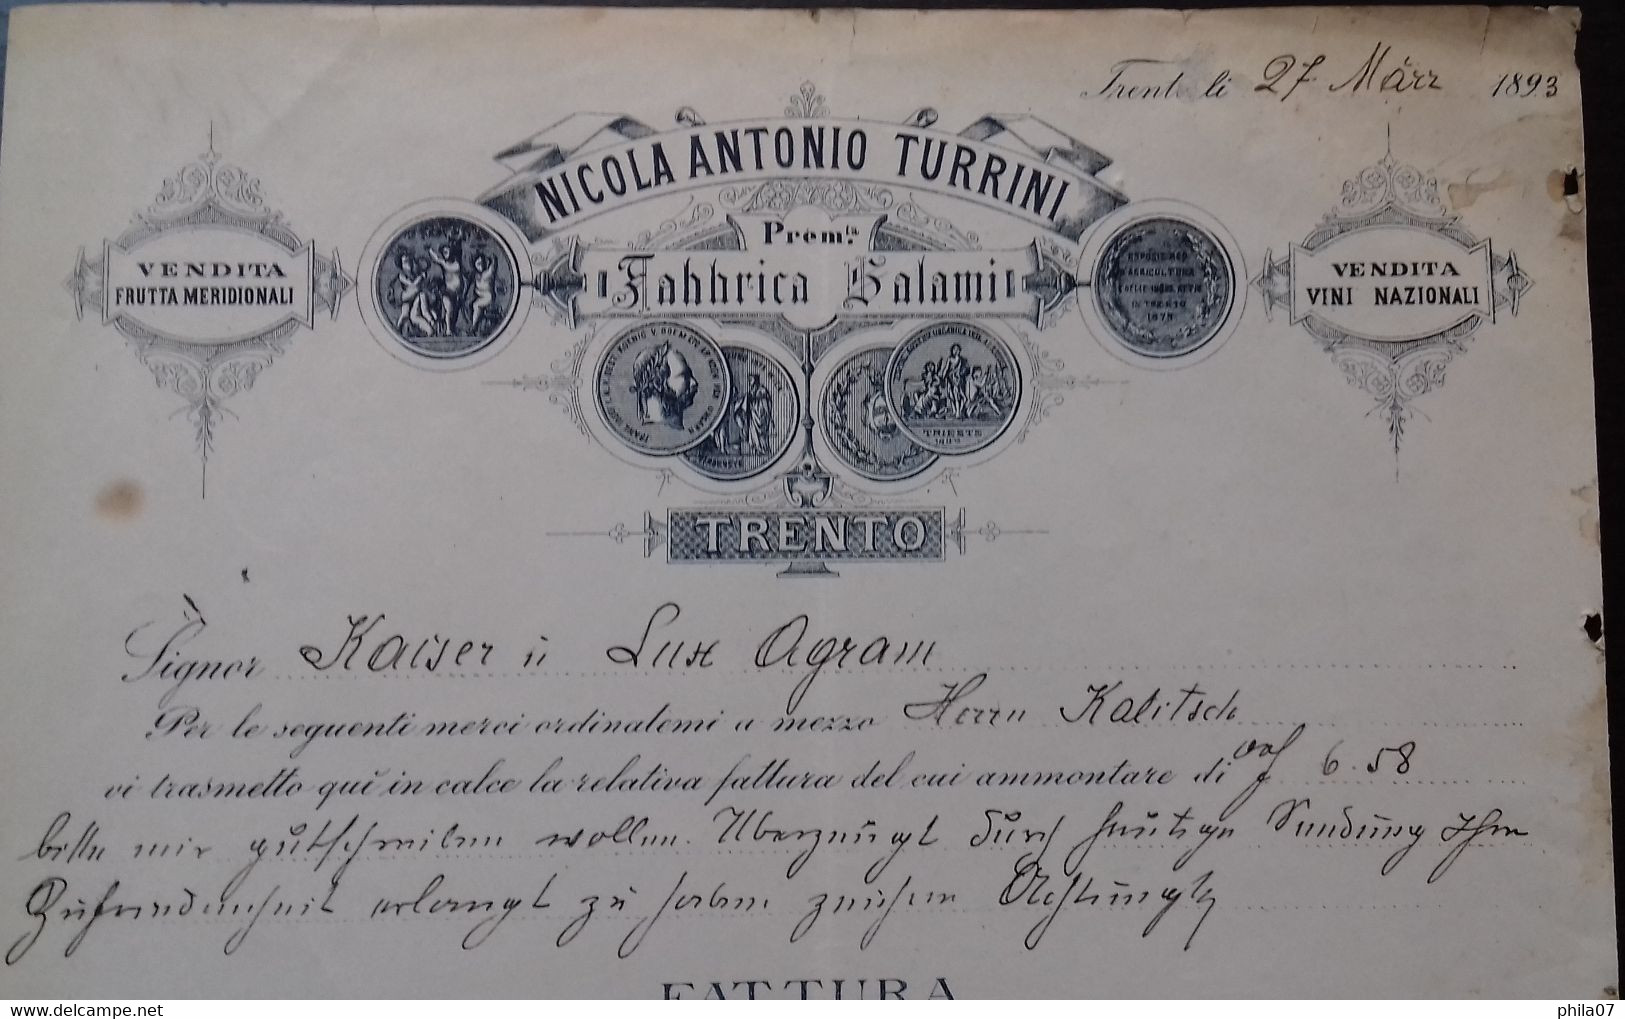 Trento li 27 März 1893
NICOLA ANTONIO TURRINI
Prem.ta
Fabbrica Salami
VENDITA
FRUTTA MERIDIONALI
VENDITA
VINI NAZIONALI
AGRICOLTURA
IN TRENTO
1875
TRIESTE
TRENTO
Signor Kaiser u Lux Agram
Per le seguenti merci ordinatemi a mezzo Herrn Kalitsch
vi trasmetto quì in calce la relativa fattura del cui ammontare di 6.58
bitte mir gutschreiben wollen. Überzeugt durch heutige Sendung Ihre
Zufriedenheit erlangt zu haben zeichne Achtungs
FATTURA
delcampe.net
phila07